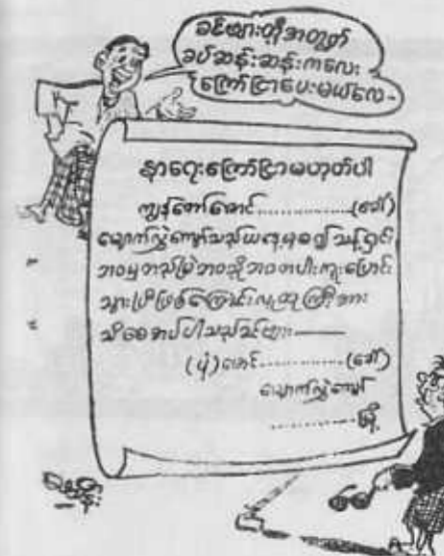 ခင်ဗျားတို့အတွက်
ခပ်ဆန်းဆန်းကလေး
ကြော်ငြာပေးမယ်လေ-
နာရေးကြော်ငြာမဟုတ်ပါ
ကျွန်တော်မောင်..............(ခေါ်)
မျောက်လွှဲကျော်သည်ယနေ့မှစ၍သန့်ရှင်း
ဘဝမှတည်မြဲဘဝသို့ဘဝတပါးကူးပြောင်း
သွားပြီဖြစ်ကြောင်းလူထုကြီးအား
သိစေအပ်ပါသည်ခင်ဗျား
(ပုံ)မောင်..............(ခေါ်)
မျောက်လွှဲကျော်
..............မြို့